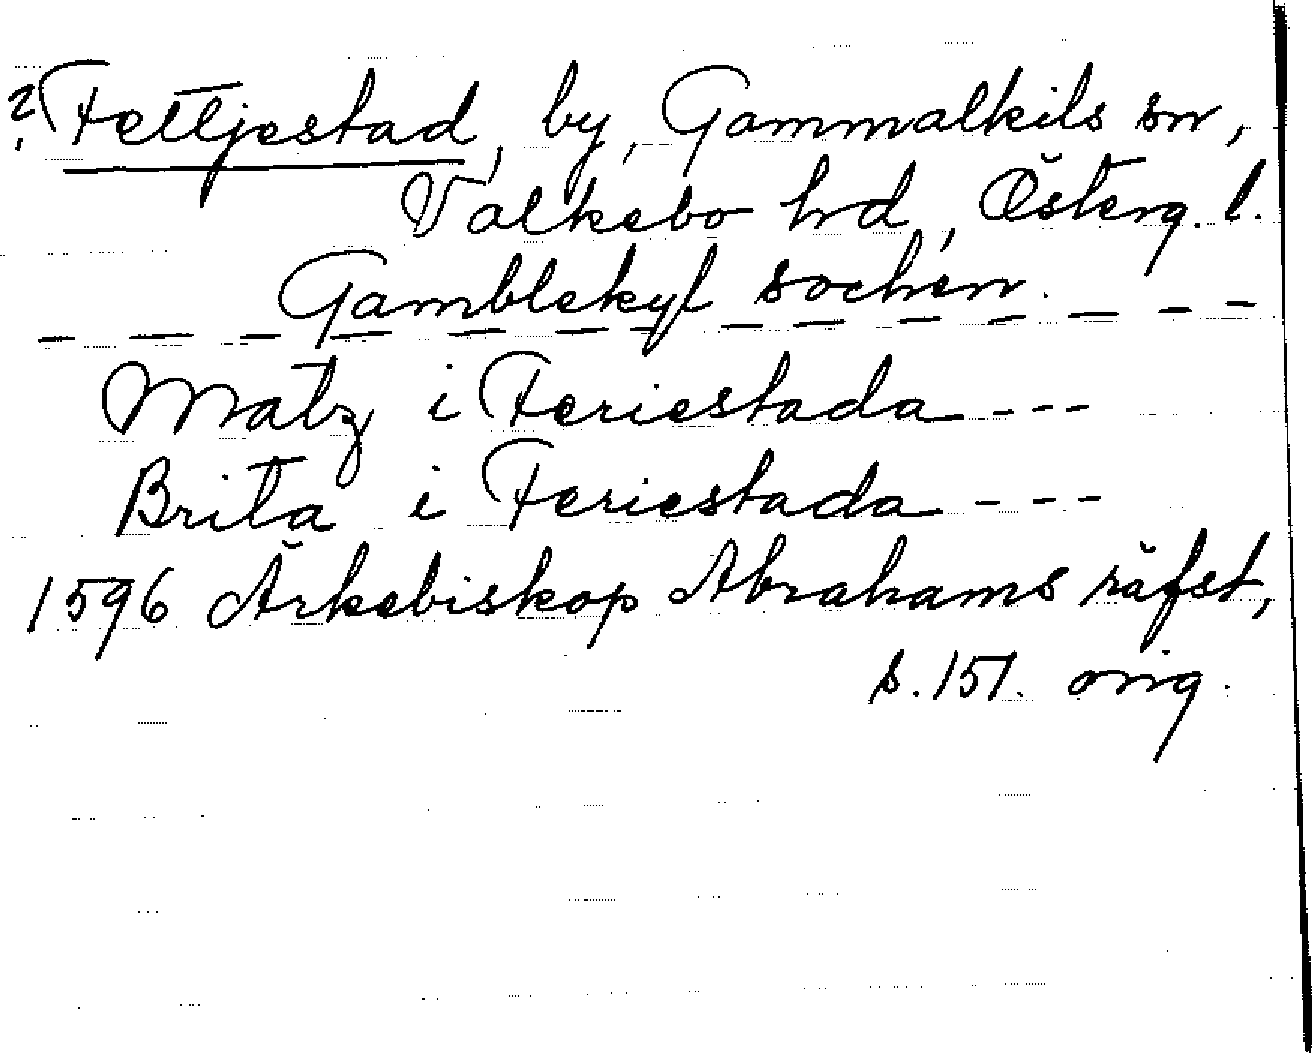 ? Fettjestad, by, Gammalkils sn,
Valkebo hrd, Österg. l.
Gamblekyl sochen.
Matz i Feriestada ---
Brita i Feriestada ---
1596 Ärkebiskop Abrahams räfst,
s. 151. orig.